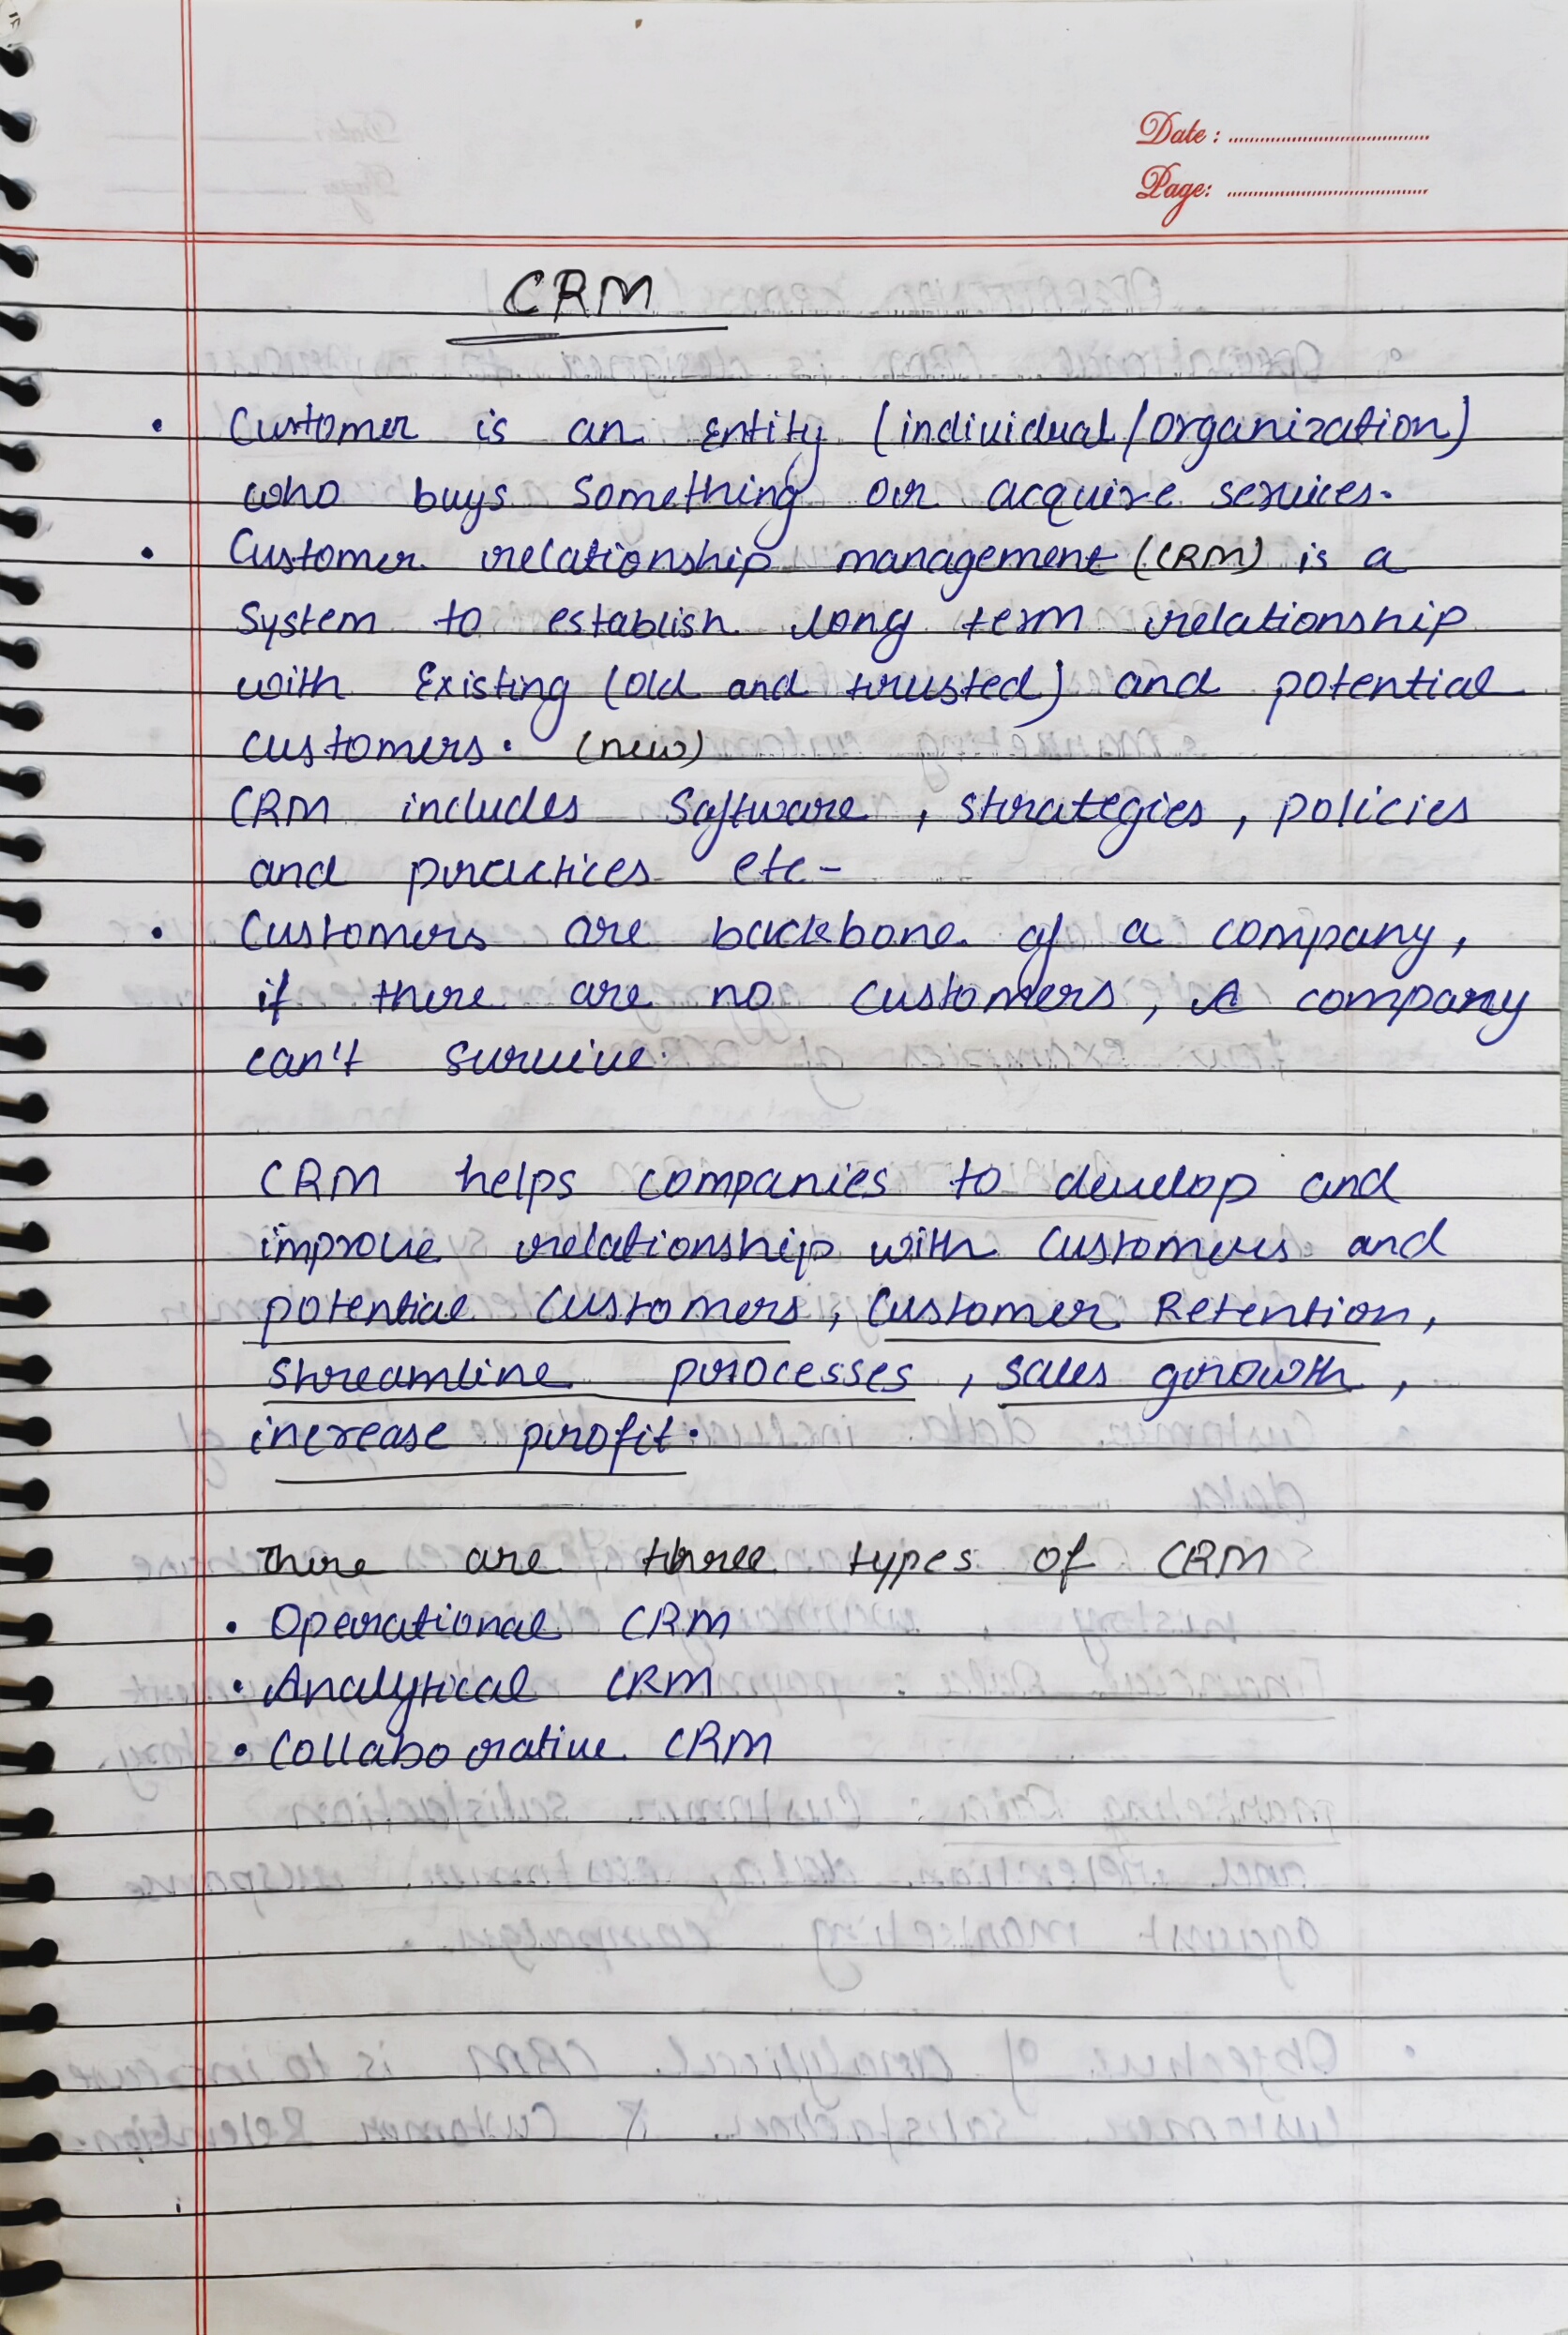 Date :
Page:
CRM
• Customer is an entity (individual/organization)
who buys something or acquire services.
• Customer relationship management (CRM) is a
system to establish long term relationship
with Existing (old and trusted) and potential
customers. (new)
CRM includes Software, strategies, policies
and practices etc-
• Customers are backbone of a company,
if there are no customers, A company
can't survive.
CRM helps companies to develop and
improve relationship with customers and
potential customers, Customer Retention,
streamline processes, sales growth,
increase profit.
There are three types of CRM
• Operational CRM
• Analytical CRM
• Collaborative CRM